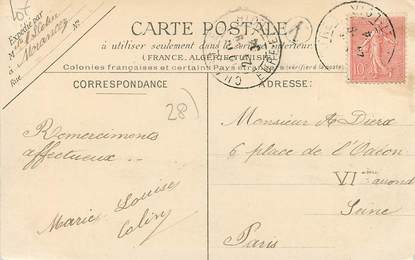 CARTE POSTALE
à utiliser seulement dans le service intérieur
(FRANCE, ALGÉRIE, TUNISIE)
Colonies françaises et certains Pays étrangers
Expédié par
N°
à
Rue
CORRESPONDANCE
ADRESSE:
28)
10
Remerciments
affectueux
Marie Louise
Monsieur A Dierx
6 place de l'Odéon
VI ème arrond
Seine
Paris